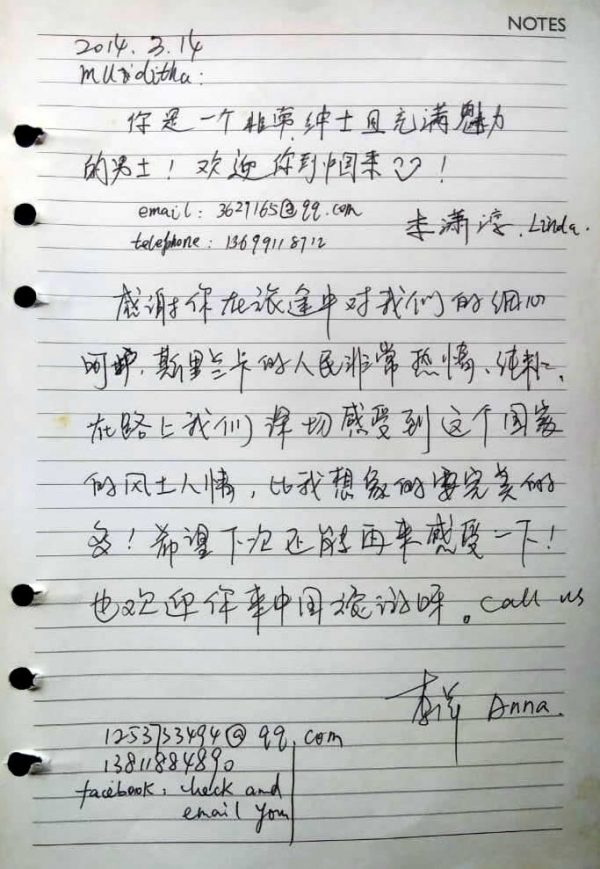 NOTES
2014.3.14
你是一个非常绅士且充满魅力
的男士！欢迎你到中国来！
email: 3627165@qq.com
李潇 Linda.
telephone: 13699118712
感谢你在旅途中对我们的细心
呵护，斯里兰卡的人民非常热情、纯朴，
在路上我们深切感受到这个国家
的风土人情，比我想象的要完美的
多！希望下次还能再来感受一下！
也欢迎你来中国旅游呀。call us
李 Anna.
1253733494@qq.com
13811884890
facebook: check and
email your